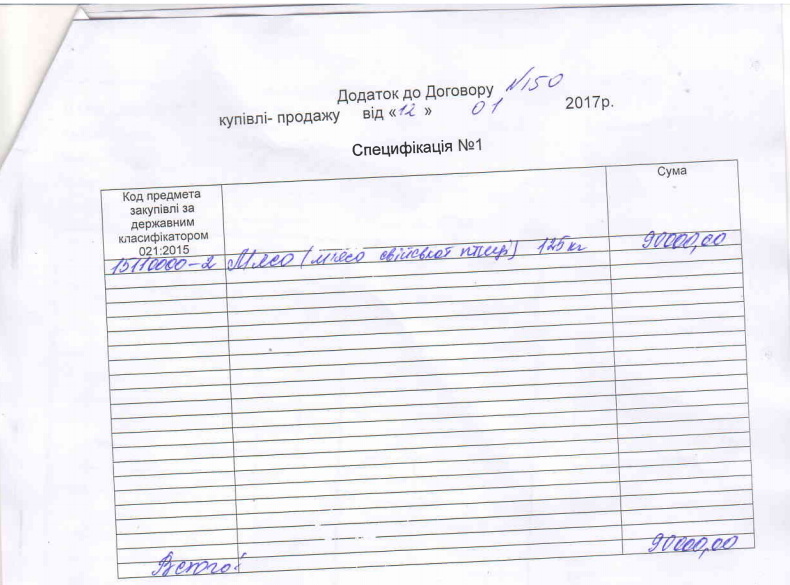 Додаток до Договору №150
купівлі- продажу від «12 » 01 2017р.
Специфікація №1
Код предмета
закупівлі за
державним
класифікатором
021:2015
Сума
15110000-2 Мясо (мясо свійської птиці) 125кг 90000,00
Всього: 90000,00